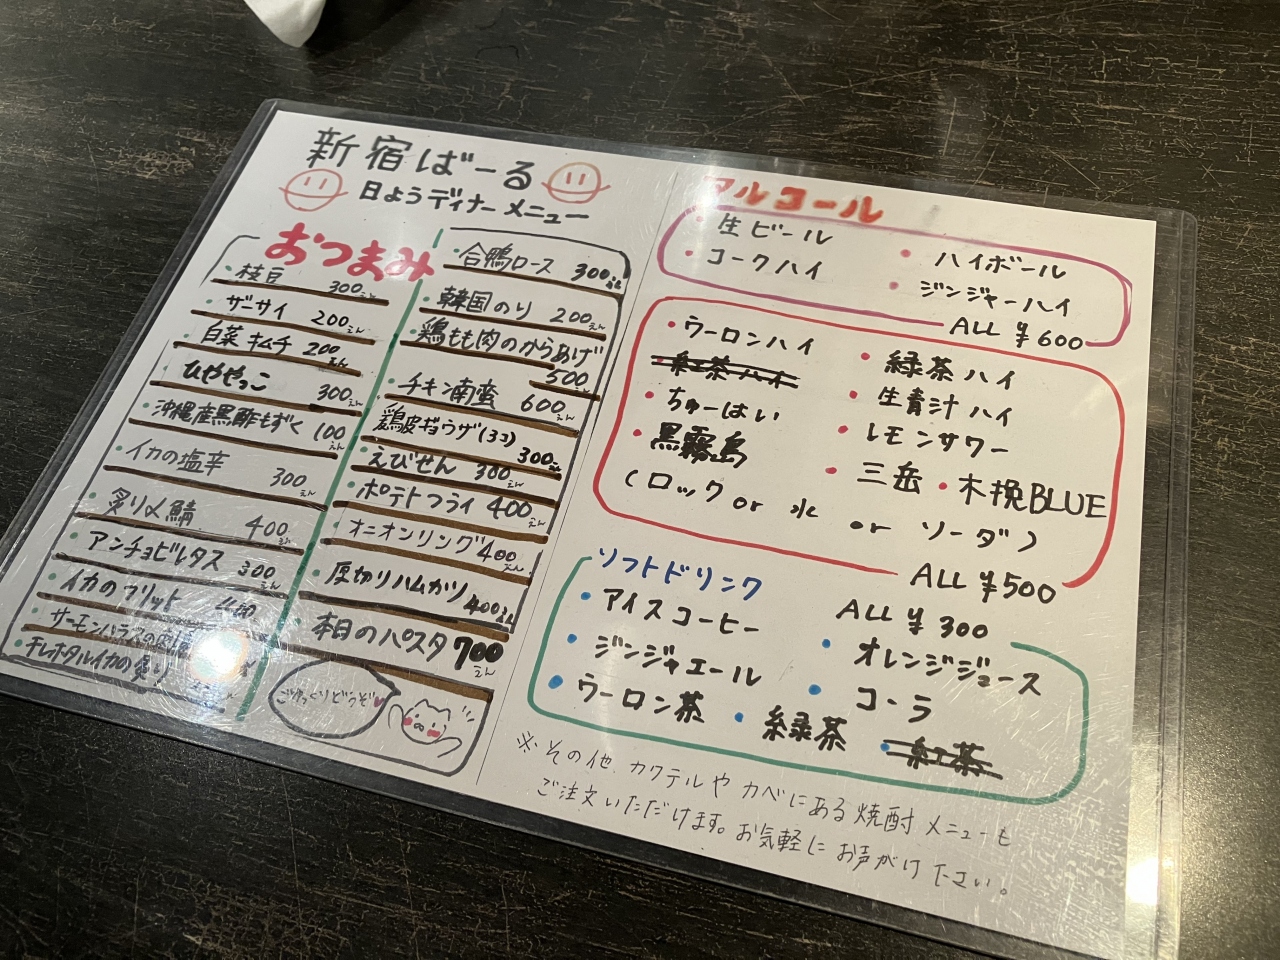 新宿ばーる
日ようディナーメニュー
おつまみ
・枝豆 300えん
・ザーサイ 200えん
・白菜キムチ 200えん
・ひややっこ 300えん
・沖縄産黒酢もずく 100えん
・イカの塩辛 300えん
・炙り〆鯖 400えん
・アンチョビレタス 300えん
・イカのフリット 400
・サーモンハラスの
・チレホタルイカの炙り
・合鴨ロース 300えん
・韓国のり 200えん
・鶏もも肉のからあげ 500えん
・チキン南蛮 600えん
・鶏皮ギョウザ(3コ) 300えん
・えびせん 300えん
・ポテトフライ 400えん
・オニオンリング 400えん
・厚切りハムカツ 400えん
・本日のパスタ 700えん
ごゆっくりどうぞ♥
アルコール
・生ビール ・ハイボール
・コークハイ ・ジンジャーハイ
ALL ¥600
・ウーロンハイ ・緑茶ハイ
・紅茶ハイ ・生青汁ハイ
・ちゅーはい ・レモンサワー
・黒霧島 ・三岳 ・木挽BLUE
(ロック or 水 or ソーダ)
ALL ¥500
ソフトドリンク ALL ¥300
・アイスコーヒー ・オレンジジュース
・ジンジャエール ・コーラ
・ウーロン茶 ・緑茶 ・紅茶
※その他、カクテルやカベにある焼酎メニューも
ご注文いただけます。お気軽にお声がけ下さい。